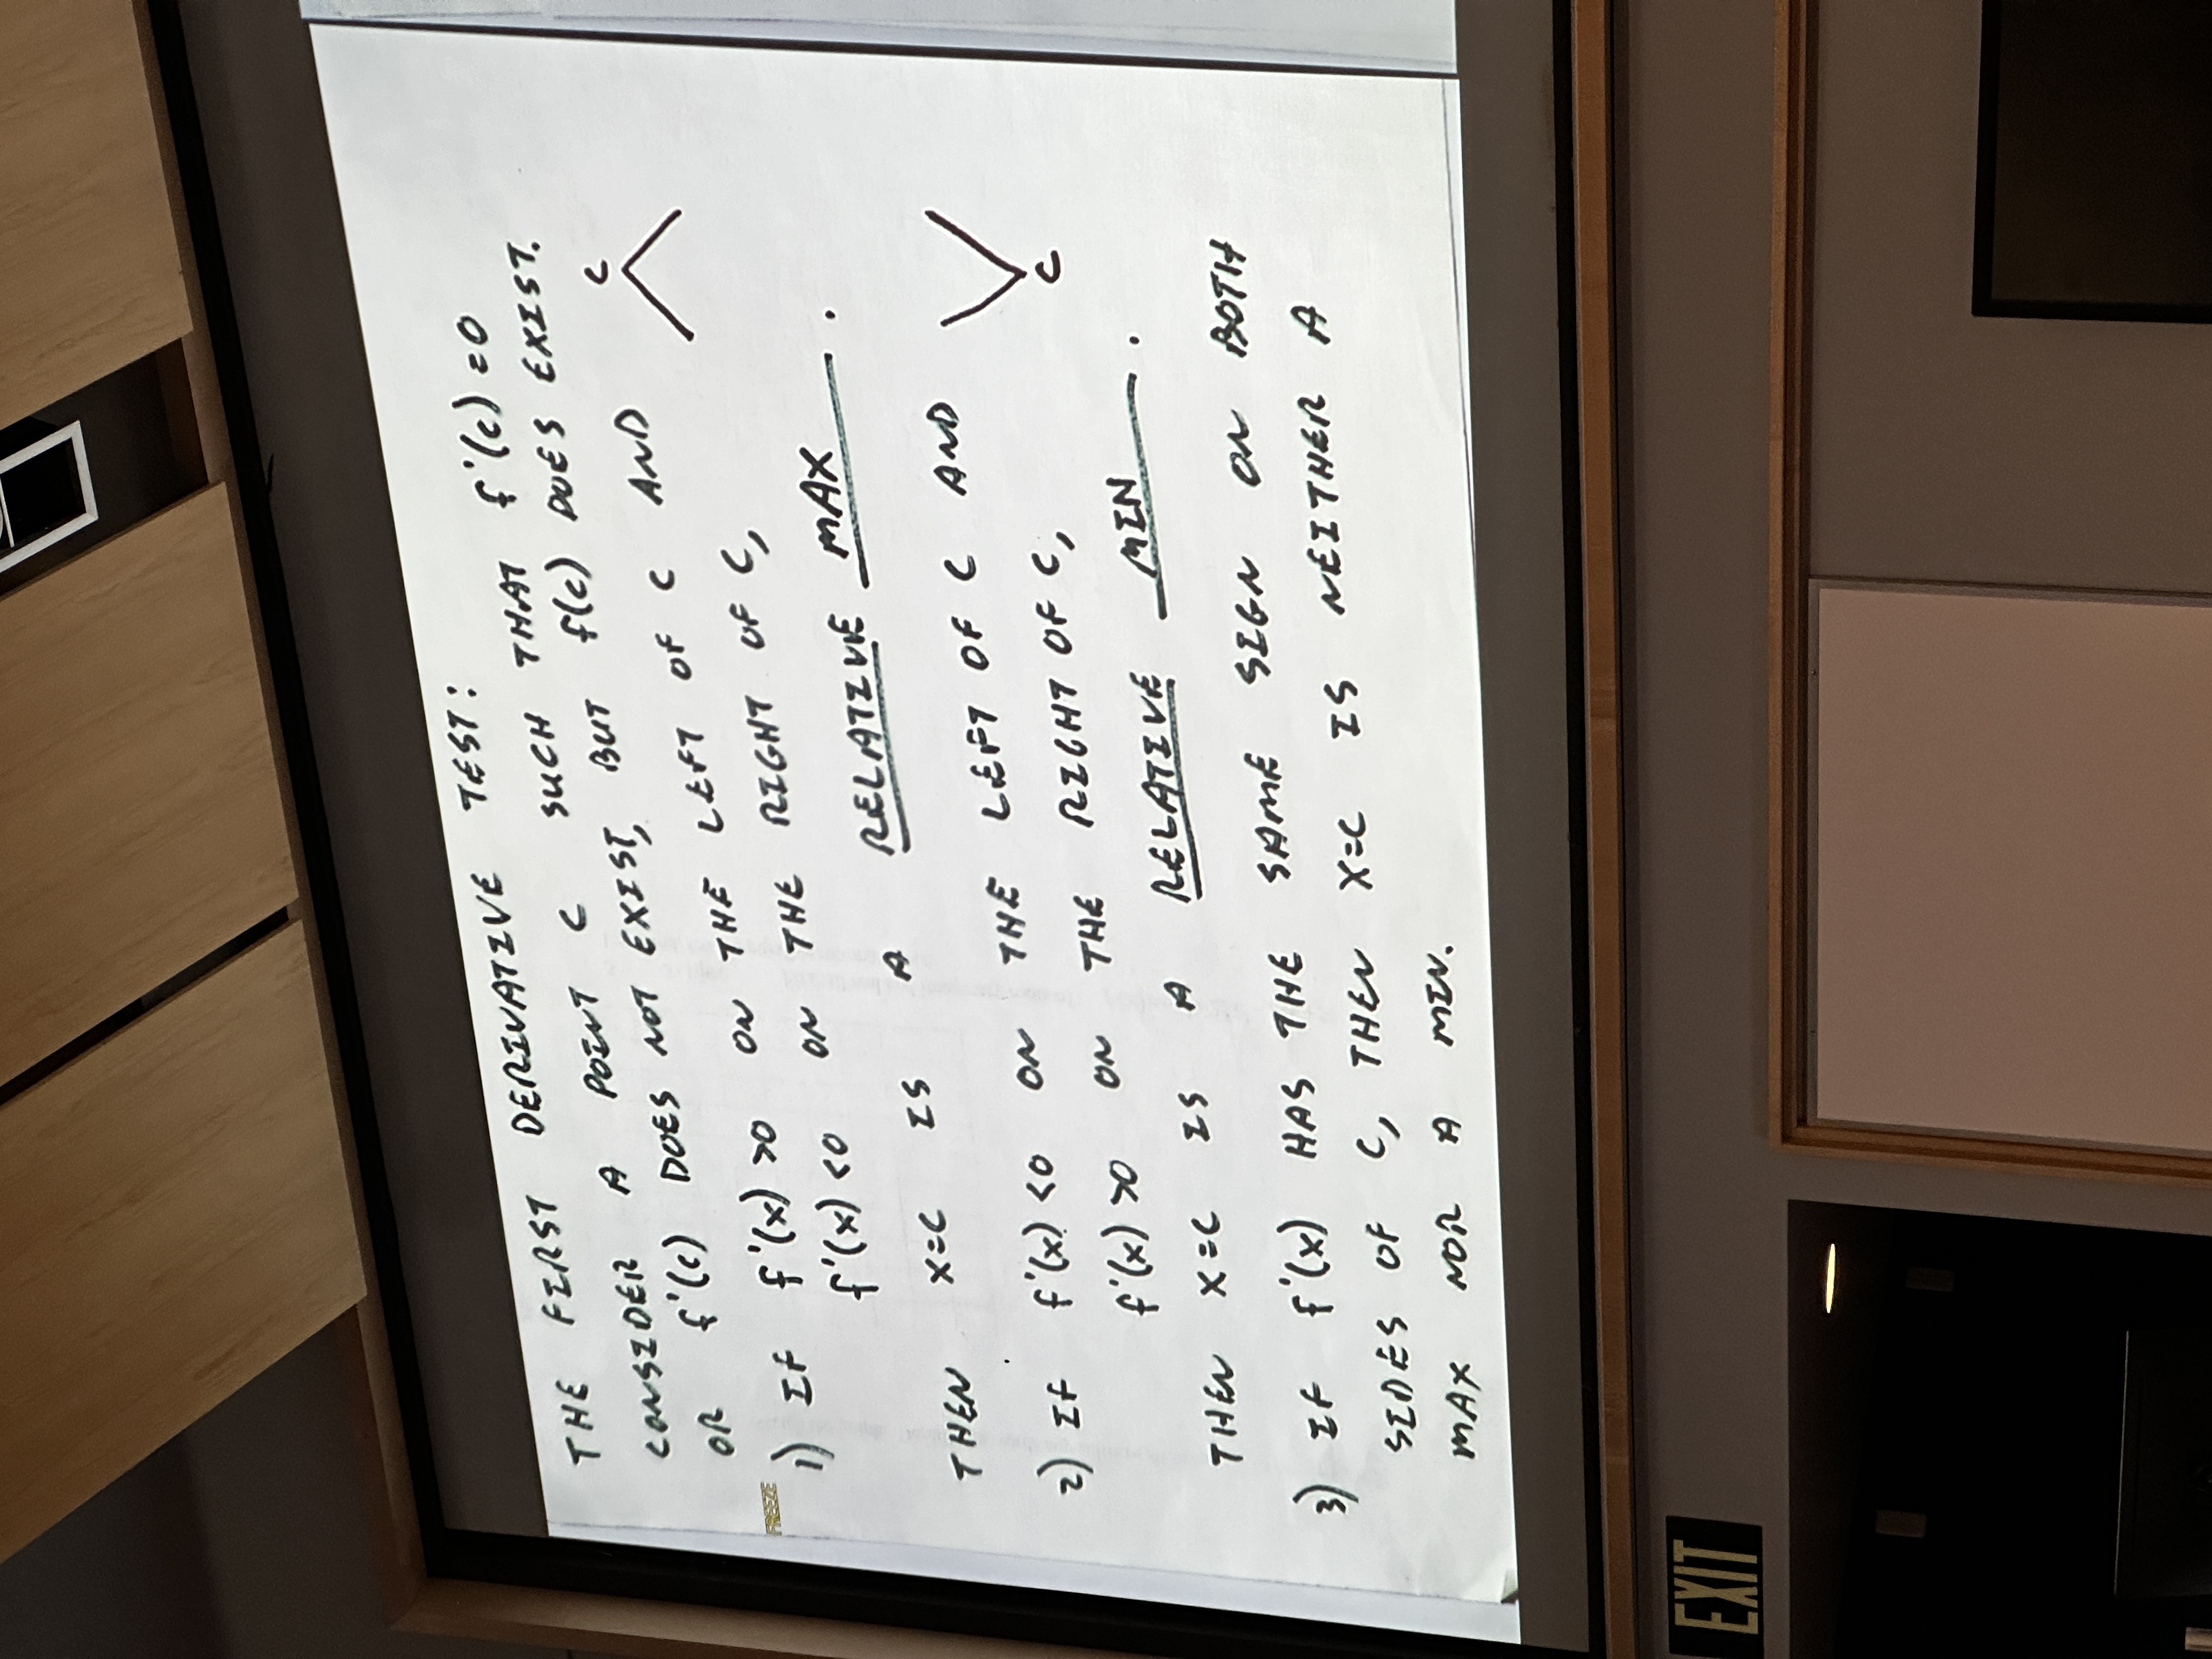 THE FIRST DERIVATIVE TEST:
CONSIDER A POINT C SUCH THAT f'(c) = 0
OR f'(c) DOES NOT EXIST, BUT f(c) DOES EXIST.
C
FREEZE
1) IF f'(x) >0 ON THE LEFT OF C AND
f'(x) <0 ON THE RIGHT OF C,
THEN X=C IS A RELATIVE MAX.
2) IF f'(x) <0 ON THE LEFT OF C AND
f'(x) >0 ON THE RIGHT OF C,
C
THEN X=C IS A RELATIVE MIN.
3) IF f'(x) HAS THE SAME SIGN ON BOTH
SIDES OF C, THEN X=C IS NEITHER A
MAX NOR A MIN.
EXIT